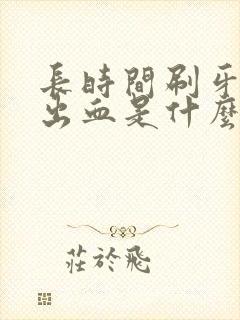 長時間刷牙
出血是什麼
莊於飛